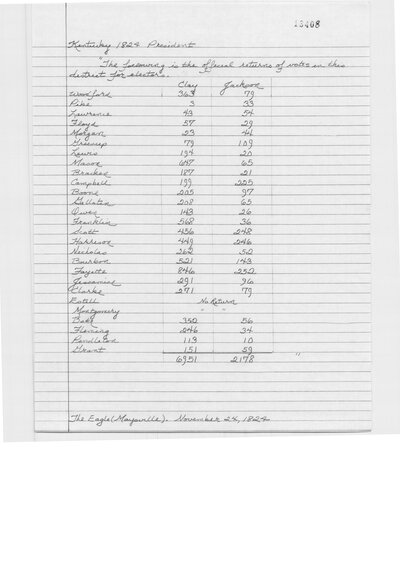 13408
Kentucky 1824 President
"The following is the official returns of votes in this
district for electors.
Clay Jackson
Woodford 363 79
Pike 3 33
Lawrence 43 54
Floyd 57 29
Morgan 23 44
Greenup 79 109
Lewis 194 20
Mason 687 65
Bracken 187 21
Campbell 199 225
Boone 205 97
Gallatin 208 65
Owen 143 26
Franklin 568 36
Scott 456 248
Harrison 449 246
Nicholas 262 52
Bourbon 521 143
Fayette 846 252
Jessamine 291 96
Clarke 271 79
Estill No Return
Montgomery " "
Bath 350 56
Fleming 246 34
Pendleton 113 10
Grant 151 59
6951 2178 "
The Eagle (Maysville). November 24, 1824